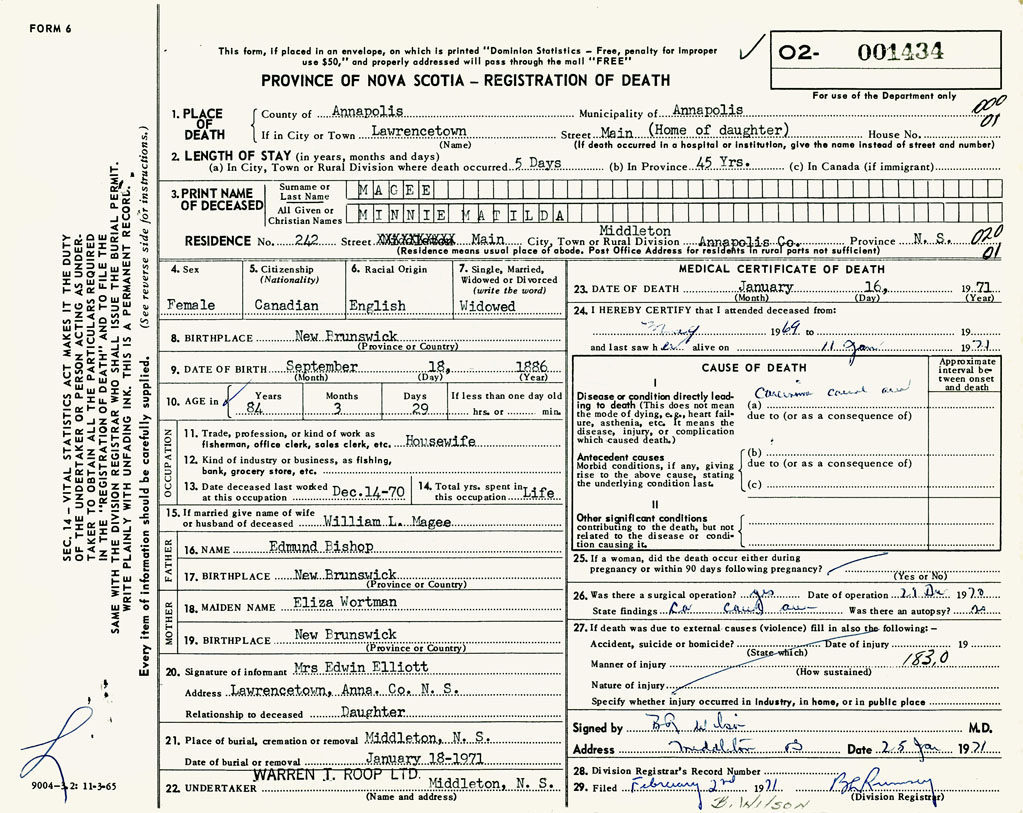 FORM 6
This form, if placed in an envelope, on which is printed "Dominion Statistics – Free, penalty for improper
use $50," and properly addressed will pass through the mail "FREE"
PROVINCE OF NOVA SCOTIA – REGISTRATION OF DEATH
02- 001434
For use of the Department only
000
01
1. PLACE OF DEATH
County of Annapolis Municipality of Annapolis
If in City or Town Lawrencetown Street Main (Home of daughter) House No.
(Name) (If death occurred in a hospital or institution, give the name instead of street and number)
2. LENGTH OF STAY (in years, months and days)
(a) In City, Town or Rural Division where death occurred 5 Days (b) In Province 45 Yrs. (c) In Canada (if immigrant)
3. PRINT NAME OF DECEASED
Surname or Last Name MAGEE
All Given or Christian Names MINNIE MATILDA
Middleton
RESIDENCE No. 242 Street Main City, Town or Rural Division Annapolis Co. Province N. S.
(Residence means usual place of abode. Post Office Address for residents in rural parts not sufficient)
020
01
4. Sex
Female
5. Citizenship
(Nationality)
Canadian
6. Racial Origin
English
7. Single, Married,
Widowed or Divorced
(write the word)
Widowed
8. BIRTHPLACE New Brunswick
(Province or Country)
9. DATE OF BIRTH September 18, 1886
(Month) (Day) (Year)
10. AGE in Years Months Days If less than one day old
84 3 29 hrs. or min.
OCCUPATION
11. Trade, profession, or kind of work as
fisherman, office clerk, sales clerk, etc. Housewife
12. Kind of industry or business, as fishing,
bank, grocery store, etc.
13. Date deceased last worked
at this occupation Dec.14-70
14. Total yrs. spent in
this occupation Life
15. If married give name of wife
or husband of deceased William L. Magee
FATHER
16. NAME Edmund Bishop
17. BIRTHPLACE New Brunswick
(Province or Country)
MOTHER
18. MAIDEN NAME Eliza Wortman
19. BIRTHPLACE New Brunswick
(Province or Country)
20. Signature of informant Mrs Edwin Elliott
Address Lawrencetown, Anna. Co. N. S.
Relationship to deceased Daughter
21. Place of burial, cremation or removal Middleton, N. S.
Date of burial or removal January 18-1971
WARREN T. ROOP LTD.
22. UNDERTAKER Middleton, N. S.
(Name and address)
MEDICAL CERTIFICATE OF DEATH
23. DATE OF DEATH January 16, 1971
(Month) (Day) (Year)
24. I HEREBY CERTIFY that I attended deceased from:
1969 to 19
and last saw her alive on 11 Jan 1971
CAUSE OF DEATH
Approximate
interval be-
tween onset
and death
I
Disease or condition directly lead-
ing to death (This does not mean
the mode of dying, e.g., heart fail-
ure, asthenia, etc. It means the
disease, injury, or complication
which caused death.)
(a)
due to (or as a consequence of)
Antecedent causes
Morbid conditions, if any, giving
rise to the above cause, stating
the underlying condition last.
(b)
due to (or as a consequence of)
(c)
II
Other significant conditions
contributing to the death, but not
related to the disease or condi-
tion causing it.
25. If a woman, did the death occur either during
pregnancy or within 90 days following pregnancy?
(Yes or No)
26. Was there a surgical operation? yes Date of operation 21 Dec 1970
State findings Was there an autopsy? no
27. If death was due to external causes (violence) fill in also the following: –
Accident, suicide or homicide? Date of injury 19
(State which)
Manner of injury 183.0
(How sustained)
Nature of injury
Specify whether injury occurred in Industry, in home, or in public place
Signed by M.D.
Address Middleton NS Date 25 Jan 1971
28. Division Registrar's Record Number
29. Filed February 2nd 1971
(Division Registrar)
B. WILSON
SEC. 14 – VITAL STATISTICS ACT MAKES IT THE DUTY
OF THE UNDERTAKER OR PERSON ACTING AS UNDER-
TAKER TO OBTAIN ALL THE PARTICULARS REQUIRED
IN THE "REGISTRATION OF DEATH" AND TO FILE THE
SAME WITH THE DIVISION REGISTRAR WHO SHALL ISSUE THE BURIAL PERMIT.
WRITE PLAINLY WITH UNFADING INK. THIS IS A PERMANENT RECORD.
Every item of information should be carefully supplied. (See reverse side for instructions.)